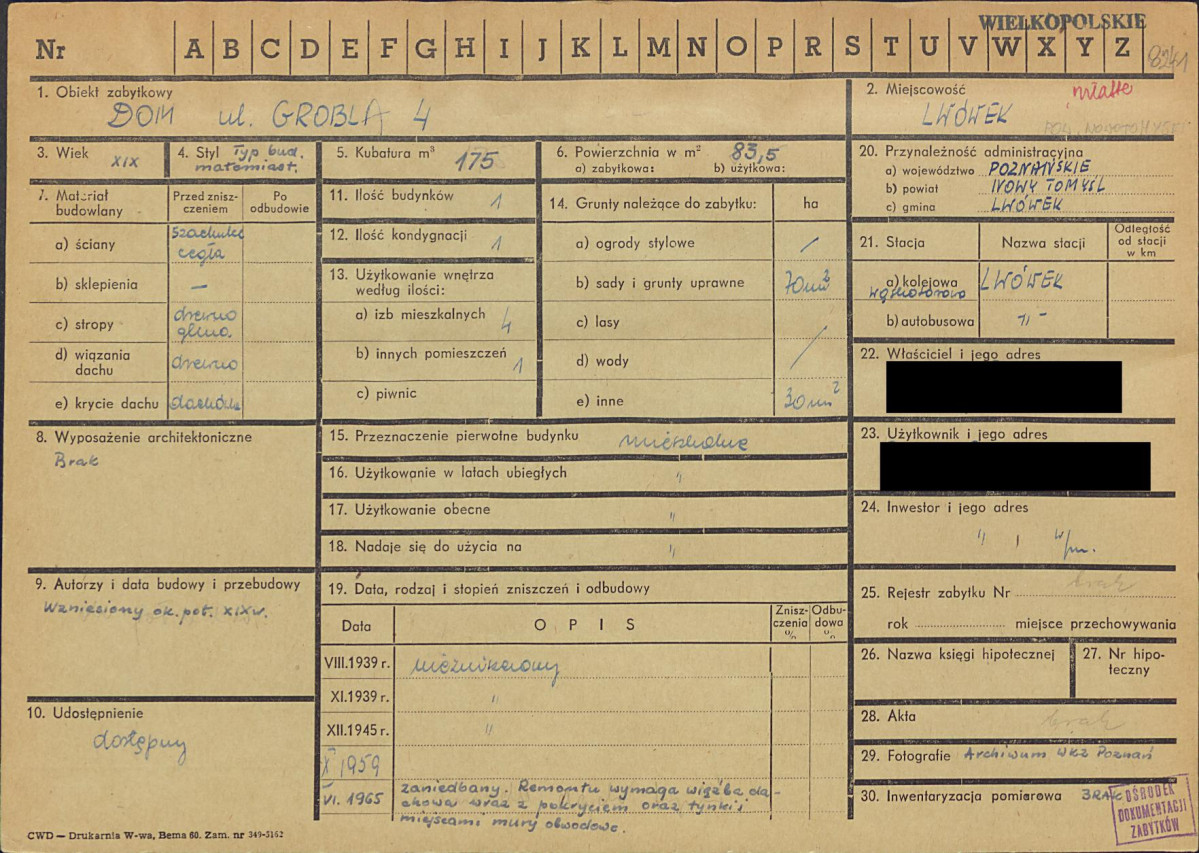 WIELKOPOLSKIE
Nr A B C D E F G H I J K L M N O P R S T U V W X Y Z
8241
1. Obiekt zabytkowy
DOM ul. GROBLA 4
2. Miejscowość
LWÓWEK
3. Wiek XIX
4. Styl Typ bud.
małomiast.
5. Kubatura m³ 175
6. Powierzchnia w m² 83,5
a) zabytkowa: b) użytkowa:
7. Materiał budowlany
Przed zniszczeniem
Po odbudowie
a) ściany szachulec
cegła
b) sklepienia —
c) stropy drewno
glina.
d) wiązania dachu drewno
e) krycie dachu dachówka
8. Wyposażenie architektoniczne
Brak
9. Autorzy i data budowy i przebudowy
Wzniesiony ok. poł. XIX w.
10. Udostępnienie
dostępny
11. Ilość budynków 1
12. Ilość kondygnacji 1
13. Użytkowanie wnętrza
według ilości:
a) izb mieszkalnych 4
b) innych pomieszczeń 1
c) piwnic
14. Grunty należące do zabytku: ha
a) ogrody stylowe /
b) sady i grunty uprawne 70 m²
c) lasy
d) wody /
e) inne 30 m²
15. Przeznaczenie pierwotne budynku mieszkalne
16. Użytkowanie w latach ubiegłych "
17. Użytkowanie obecne "
18. Nadaje się do użycia na "
19. Data, rodzaj i stopień zniszczeń i odbudowy
Data O P I S Zniszczenia % Odbudowa %
VIII.1939 r.
XI.1939 r. "
XII.1945 r. "
X 1959
VI. 1965 zaniedbany. Remontu wymaga więźba da-
chowa wraz z pokryciem oraz tynki i
miejscami mury obwodowe.
20. Przynależność administracyjna
a) województwo POZNAŃSKIE
b) powiat NOWY TOMYŚL
c) gmina LWÓWEK
21. Stacja Nazwa stacji Odległość od stacji w km
a) kolejowa LWÓWEK
wąskotorowa
b) autobusowa -"-
22. Właściciel i jego adres
23. Użytkownik i jego adres
24. Inwestor i jego adres
25. Rejestr zabytku Nr brak
rok miejsce przechowywania
26. Nazwa księgi hipotecznej
27. Nr hipoteczny
28. Akta brak
29. Fotografie Archiwum WKZ Poznań
30. Inwentaryzacja pomiarowa BRAK
OŚRODEK
DOKUMENTACJI
ZABYTKÓW
CWD — Drukarnia W-wa, Bema 60. Zam. nr 349-5162